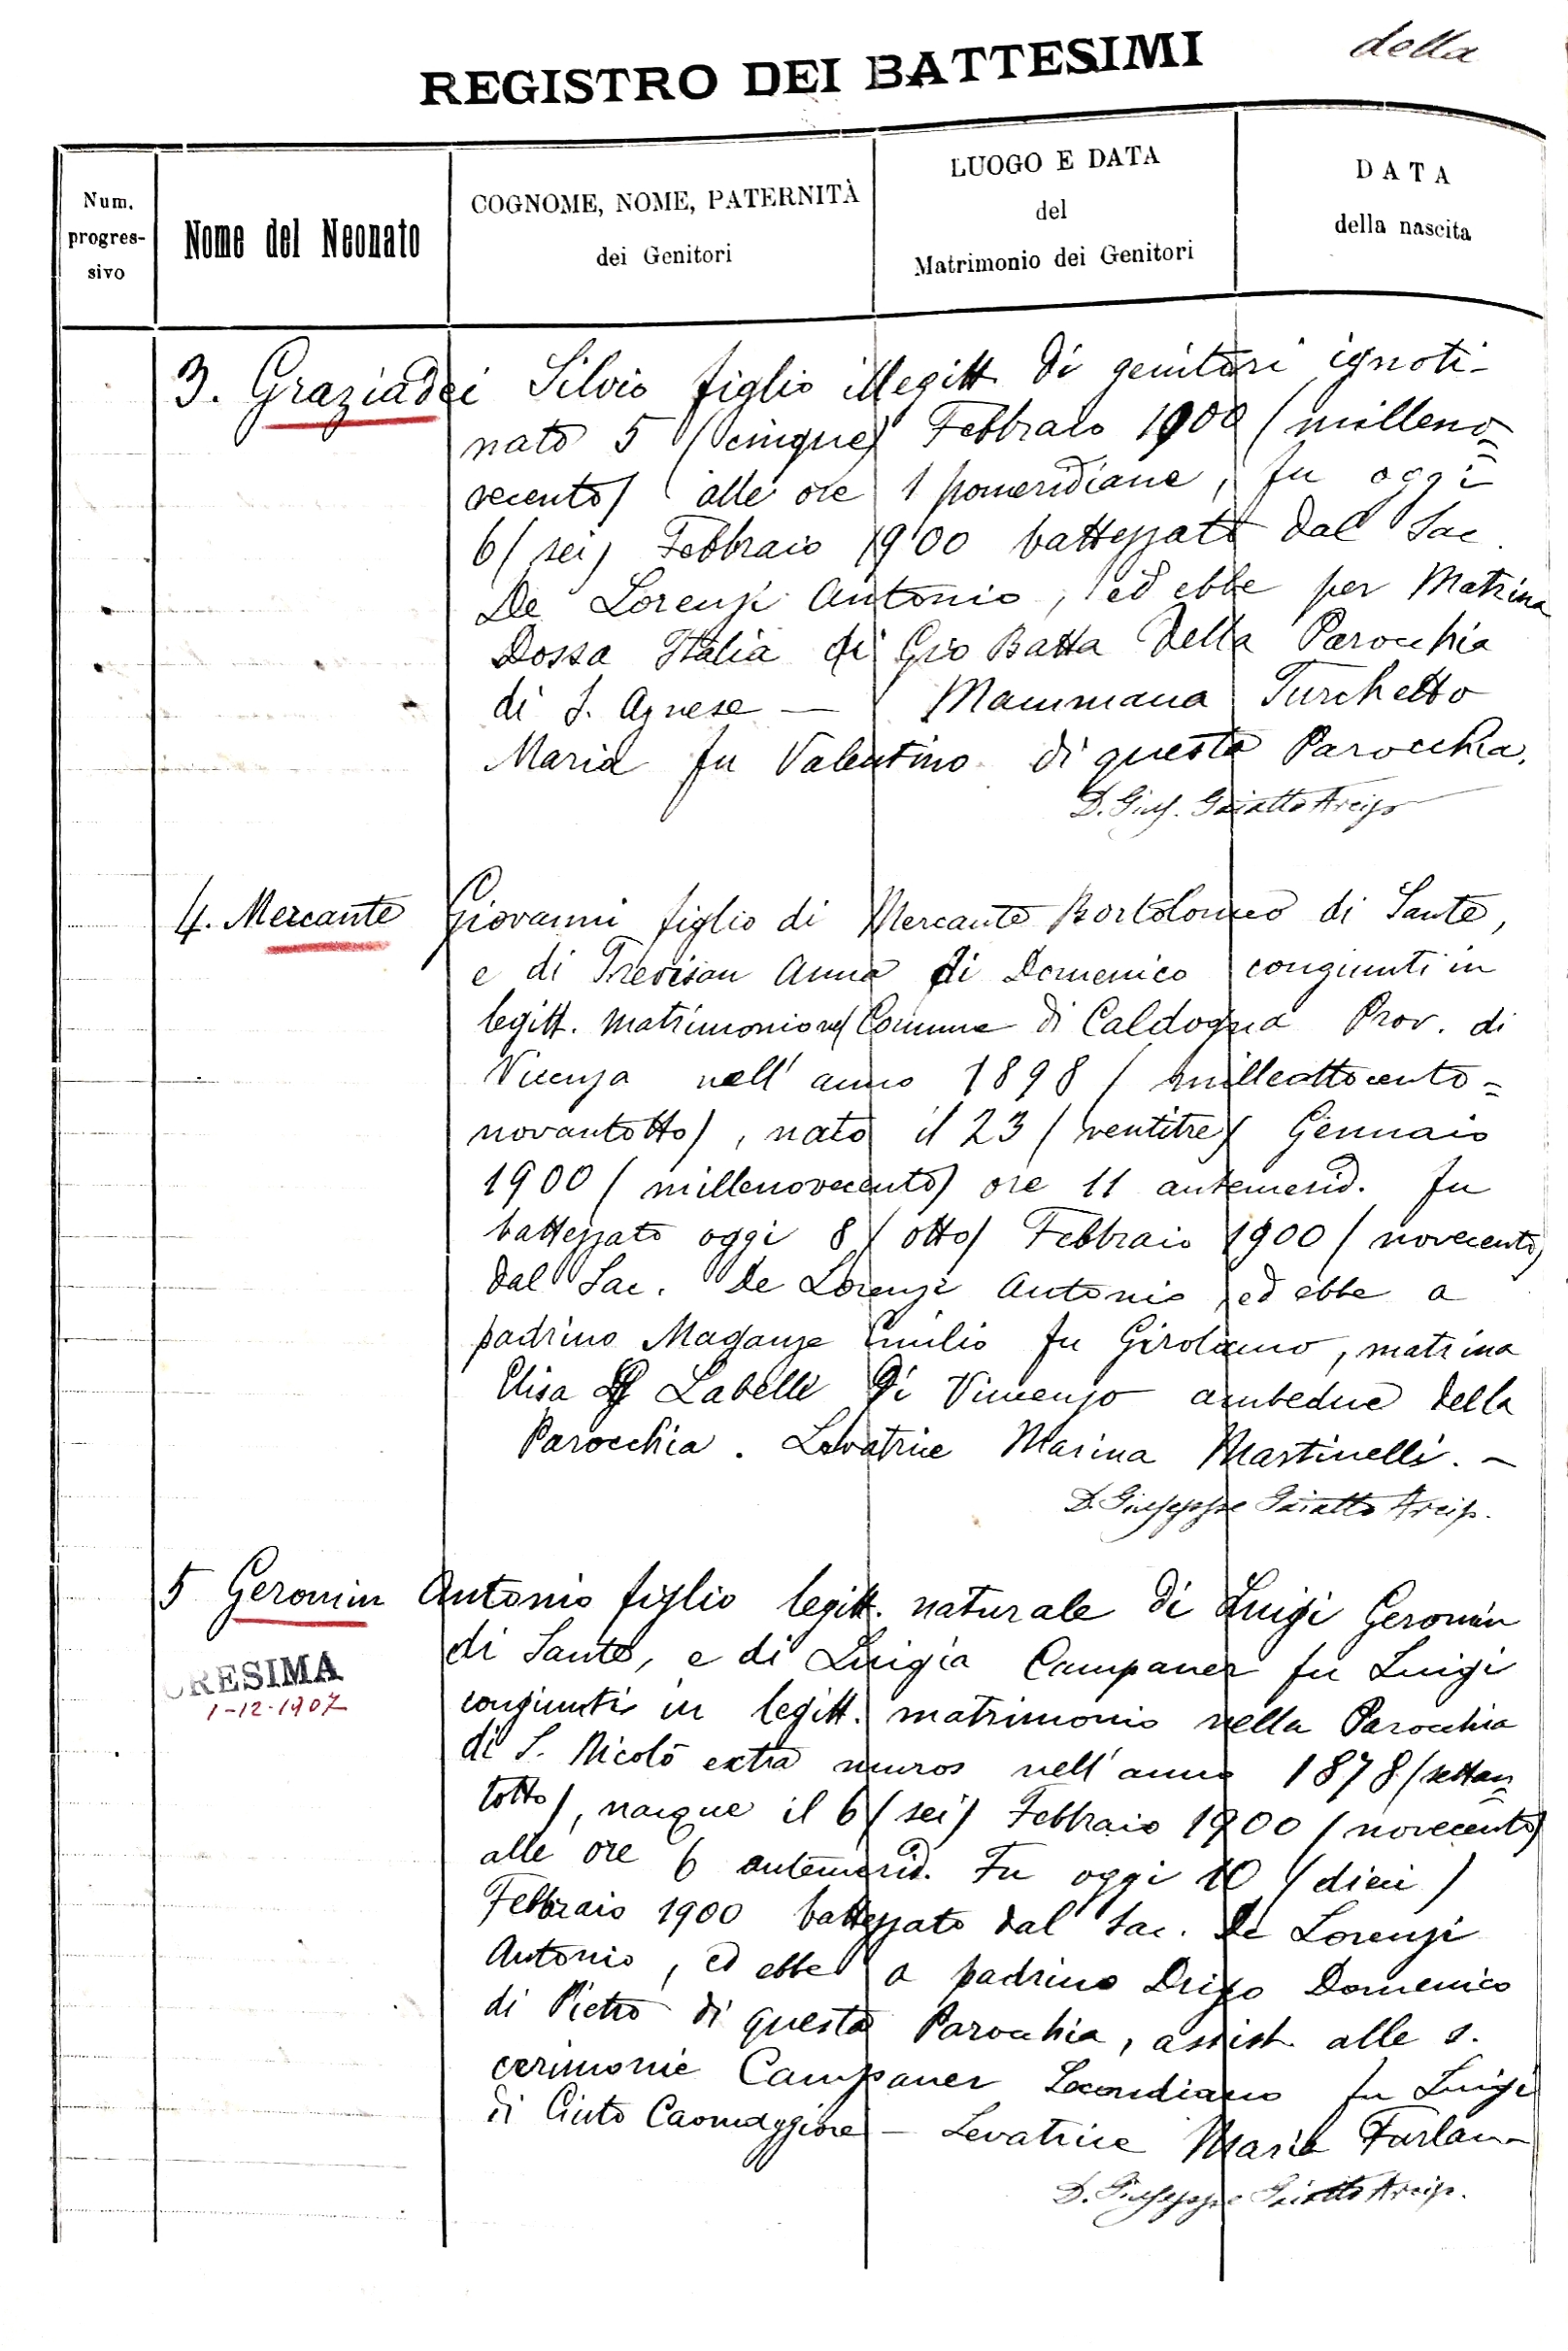 REGISTRO DEI BATTESIMI della
Num. progres- sivo
Nome del Neonato
COGNOME, NOME, PATERNITÀ
dei Genitori
LUOGO E DATA
del
Matrimonio dei Genitori
DATA
della nascita
3. Graziadei Silvio figlio illegitt. di genitori ignoti -
nato 5 (cinque) Febbraio 1900 (milleno=
vecento) alle ore 1 pomeridiane, fu oggi
6 (sei) Febbraio 1900 battezzato dal Sac.
De Lorenzi Antonio, ed ebbe per Matrina
Dossa Italia di Gio Batta della Parocchia
di S. Agnese — Mammana Turchetto
Maria fu Valentino di questa Parocchia.
D. Gius. Gaiatto Arcip
4. Mercante Giovanni figlio di Mercante Bortolomeo di Sante,
e di Trevisan Anna di Domenico congiunti in
legitt. matrimonio nel Comune di Caldogna Prov. di
Vicenza nell' anno 1898 (milleottocento=
novantotto), nato il 23 (ventitre) Gennaio
1900 (millenovecento) ore 11 antemerid. fu
battezzato oggi 8 (otto) Febbraio 1900 (novecento)
dal Sac. De Lorenzi Antonio, ed ebbe a
padrino Maganze Emilio fu Girolamo, matrina
Elisa Labelle di Vincenzo ambedue della
Parocchia. Levatrice Marina Martinelli. —
D. Giuseppe Gaiatto Arcip.
5 Geromin Antonio figlio legitt. naturale di Luigi Geromin
di Sante, e di Luigia Campaner fu Luigi
CRESIMA
congiunti in legitt. matrimonio nella Parocchia
1-12-1907
di S. Nicolò extra muros nell' anno 1878 (settan=
totto), nacque il 6 (sei) Febbraio 1900 (novecento)
alle ore 6 antemerid. Fu oggi 10 (dieci)
Febbraio 1900 battezzato dal Sac. De Lorenzi
Antonio, ed ebbe a padrino Drigo Domenico
di Pietro di questa Parocchia, assist. alle s.
cerimonie Campaner Secondiano fu Luigi
di Cinto Caomaggiore — Levatrice Maria Furlan —
D. Giuseppe Gaiatto Arcip.